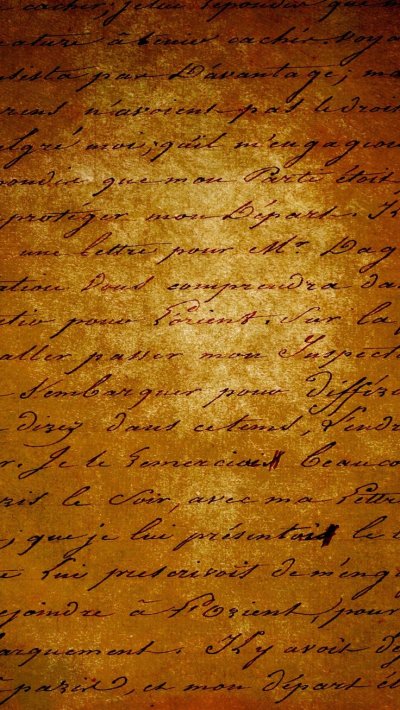 cacher; je lui répondis que
nature à tenir caché. Voya
sista pas Davantage; ma
rens n'avoient pas le droit
lgré moi; qu'il m'engageoi
pondis que mon Parti étoit
protéger mon Départ. Il
une lettre pour Mr. Dag
ation Vous comprendra da
tio pour Lorient. Sur la
aller passer mon Inspecti
s'embarquer pour différe
direz dans ce tems, L'endr
r. Je le Remerciois beauco
ris le Soir, avec ma Lettre
; que je lui présentois le
e Lui prescrivoit de m'eng
ejoindre à L'Orient, pour
arquement. Il y avoit de
paris, et mon départ ét